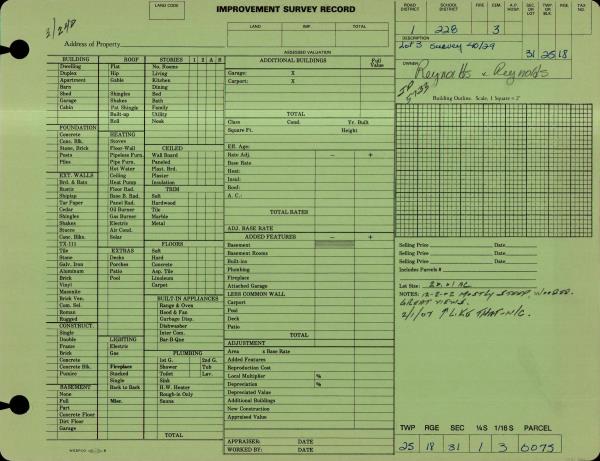 LAND CODE
IMPROVEMENT SURVEY RECORD
Address of Property
LAND IMP. TOTAL
ASSESSED VALUATION
BUILDING ROOF STORIES 1 2 A B
Dwelling Flat No. Rooms
Duplex Hip Living
Apartment Gable Kitchen
Barn Dining
Shed Shingles Bed
Garage Shakes Bath
Cabin Pat Shingle Family
Built-up Utility
Roll Nook
FOUNDATION
Concrete HEATING
Conc. Blk. Stoves CEILED
Stone, Brick Floor-Wall Wall Board
Posts Pipeless Furn. Paneled
Piles Pipe Furn. Plast. Brd.
Hot Water Plaster
EXT. WALLS Ceiling Insulation
Brd. & Bats Heat Pump
Rustic Floor Rad. TRIM
Shiplap Base B. Rad. Soft
Tar Paper Panel Rad. Hardwood
Cedar Oil Burner Tile
Shingles Gas Burner Marble
Shakes Electric Metal
Stucco Air Cond.
Conc. Blks. Solar
TX-111 FLOORS
Tile EXTRAS Soft
Stone Decks Hard
Galv. Iron Porches Concrete
Aluminum Patio Asp. Tile
Brick Pool Linoleum
Vinyl Carpet
Masonite
Brick Ven. BUILT-IN APPLIANCES
Com. Sel. Range & Oven
Roman Hood & Fan
Rugged Garbage Disp.
CONSTRUCT. Dishwasher
Single LIGHTING Inter Com.
Double Electric Bar-B-Que
Frame Gas
Brick PLUMBING
Concrete 1st G. 2nd G.
Concrete Blk. Fireplace Shower Tub
Pumice Stacked Toilet Lav.
Single Sink
BASEMENT Back to Back H.W. Heater
None Rough-in Only
Full Misc. Sauna
Part
Concrete Floor
Dirt Floor
Garage
TOTAL
ADDITIONAL BUILDINGS Full Value
Garage: X
Carport: X
TOTAL
Class Cond. Yr. Built
Square Ft. Height
Eff. Age:
Rate Adj. − +
Base Rate
Heat:
Insul:
Bsmt:
A. C.:
TOTAL RATES
ADJ. BASE RATE
ADDED FEATURES − +
Basement
Basement Rooms
Built-ins
Plumbing
Fireplace
Attached Garage
LESS COMMON WALL
Carport
Pool
Deck
Patio
TOTAL
ADJUSTMENT
Area x Base Rate
Added Features
Reproduction Cost
Local Multiplier %
Depreciation %
Depreciated Value
Additional Buildings
New Construction
Appraised Value
APPRAISER: DATE
WORKED BY: DATE
ROAD DISTRICT SCHOOL DISTRICT FIRE CEM. A.P. HOSP. SEC. OR LOT TWP. OR BLK. RGE. TAX NO.
228 3
DESCRIPTION
Lot 3 Survey 40/29
31 25 18
OWNER
Reynolds & Reynolds
Building Outline. Scale, 1 Square = 2'
Selling Price Date
Selling Price Date
Selling Price Date
Includes Parcels #
Lot Size:
NOTES: 12-2-02 MOSTLY STEEP, WOODED.
GREAT VIEWS.
TWP RGE SEC ¼S 1/16S PARCEL
25 18 31 1 3 0075